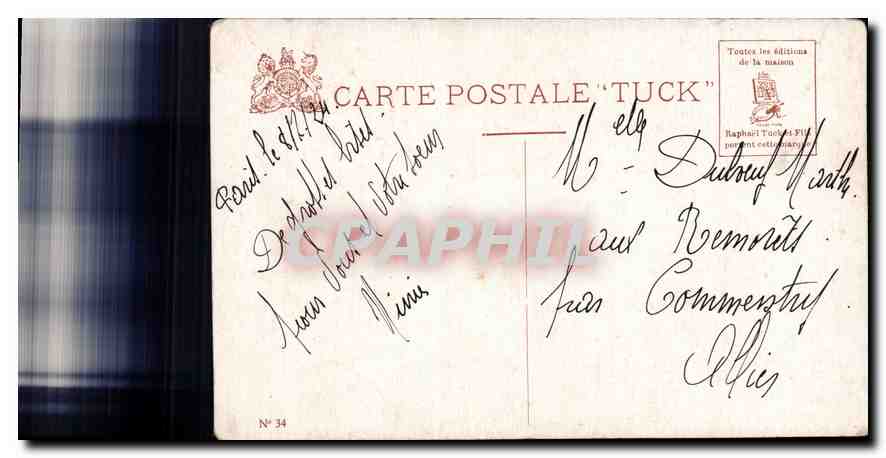 CARTE POSTALE "TUCK"
Toutes les éditions
de la maison
Raphaël Tuck et Fils
portent cette marque
Paris. le 8/2/24
De grosses bises.
pour Vous et Votre soeur
Mimie
Melle Duboeuf Marthe
aux Remorêts
par Commentry
Allier
CPAPHIL
Nº 34